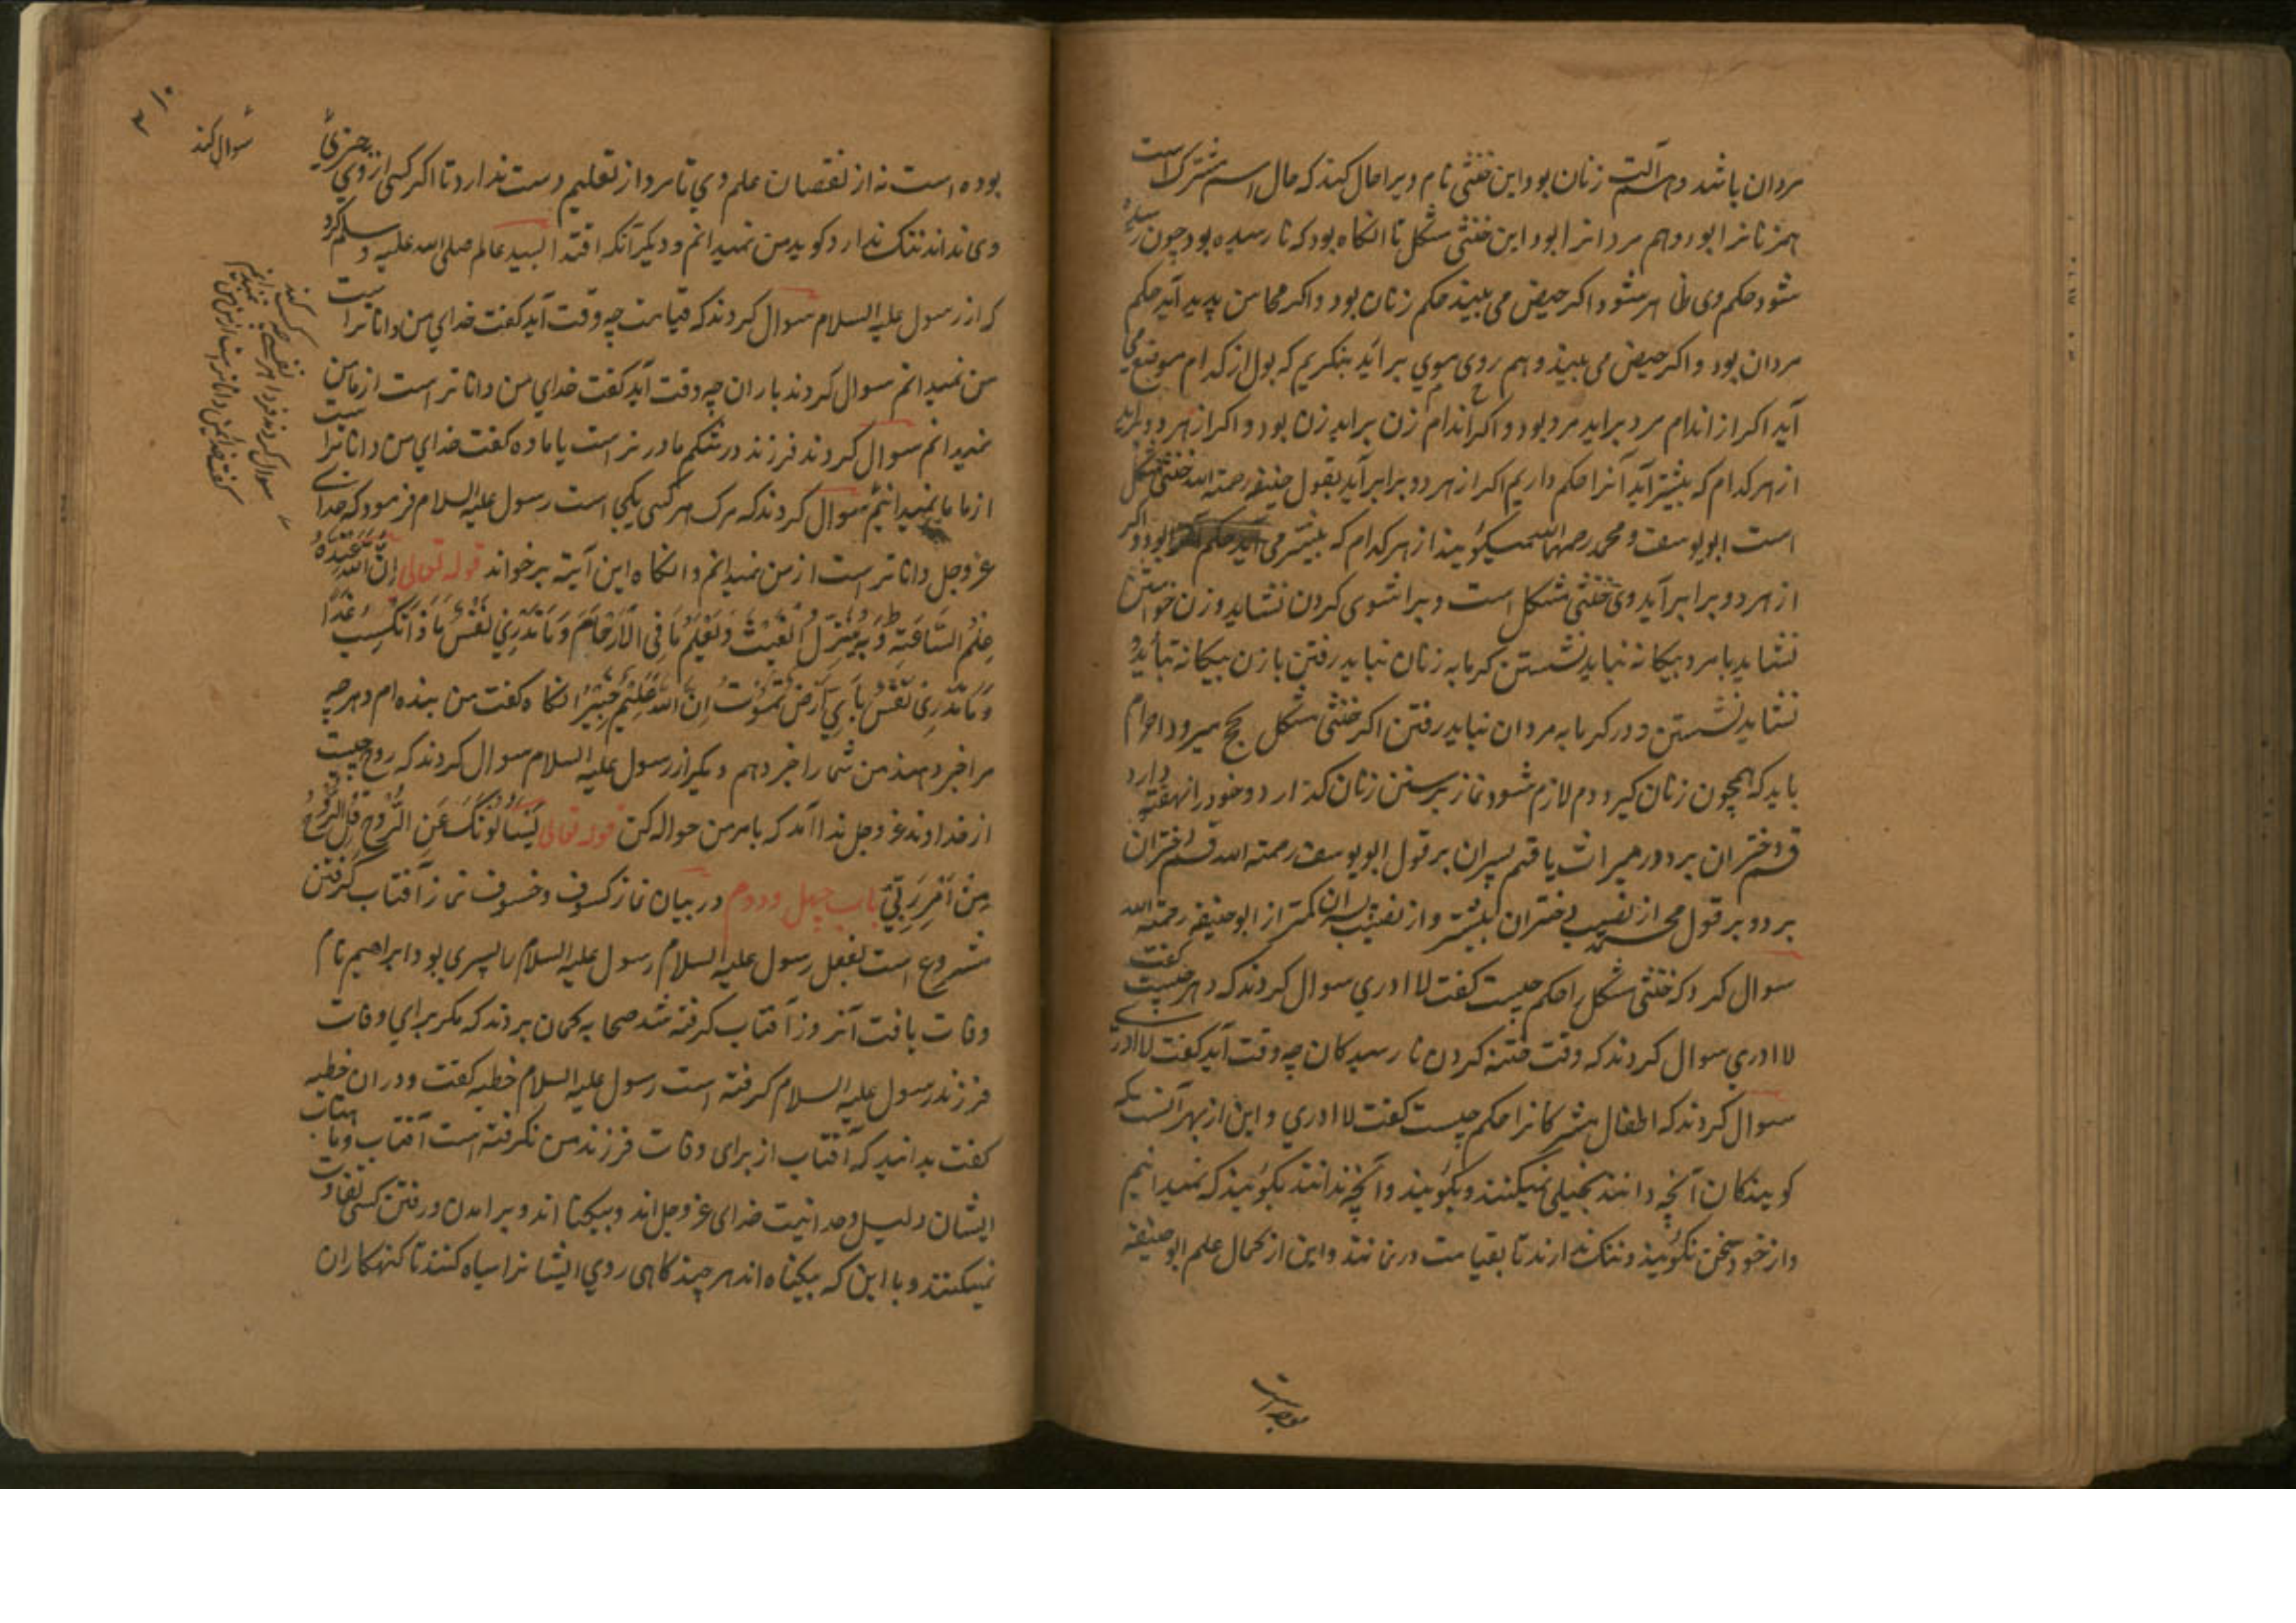 مردان باشد و هم آلت زنان بود این خنثی نام ویرا حال کنند که حال اسم مشترک است
هم زنانرا بود و هم مردانرا بود این خنثی مشکل تا انکاه بود که نا رسیده بود چون رسیده
شود حکم وی ظاهر شود اکر حیض می بیند حکم زنان بود و اکر محاسن پدید آید حکم
مردان بود و اکر حیض می بیند و هم روی موی برآید بنکریم که بول از کدام موضع می
آید اکر از اندام مرد براید مرد بود و اکر اندام زن براید زن بود و اکر از هر دو براید
از هر کدام که بیشتر آید آنرا حکم داریم اکر از هر دو برابر آید بقول حنیفه رحمته الله خنثی مشکل
است ابو یوسف و محمد رحمهما الله میکویند از هر کدام که بیشتر می آید حکم بود و اکر
از هر دو برابر آید وی خنثی مشکل است ویرا شوی کردن نشاید و زن خواستن
نشاید با مرد بیکانه نباید نشستن کرمابه زنان نباید رفتن با زن بیکانه نباید
نشاید نشستن و در کرمابه مردان نباید رفتن اکر خنثی مشکل بحج میرود احرام
باید که همچون زنان کیرد و دم لازم شود نماز برسنن زنان کذارد و خود را نهفته دارد
قسم دختران برد در میراث یا قسم پسران بر قول ابو یوسف رحمته الله قسم دختران
برد و بر قول محمد از نصیب دختران بیشتر و از نصیب پسران کمتر از ابو حنیفه رحمته الله
سوال کرد که خنثی مشکل را حکم چیست کفت لا ادري سوال کردند که دهر چیست کفت
لا ادري سوال کردند که وقت ختنه کردن نا رسیدکان چه وقت آید کفت لا ادري
سوال کردند که اطفال مشرکانرا حکم چیست کفت لا ادري و این از بهر آنست که
کویندکان آنچه دانند بخیلی نمیکنند و بکویند و آنچه ندانند بکویند که نمیدانیم
و از خود سخن نکویند و ننک ندارند تا بقیامت در نمانند و این از کمال علم ابو حنیفه
بوده است نه از نقصان علم وي تا مرد از تعلیم دست ندارد تا اکر کسی از وي چیزي
سوال کند
وی نداند ننک ندارد کوید من نمیدانم و دیکر آنکه اقتدا بسید عالم صلی الله علیه و سلم کرد
که از رسول علیه السلام سوال کردند که قیامت چه وقت آید کفت خداي من داناتر است
من نمیدانم سوال کردند باران چه وقت آید کفت خداي من داناتر است از ما من
نمیدانم سوال کردند فرزند در شکم مادر نر است یا ماده کفت خداي من داناتر است
از ما ما نمیدانیم سوال کردند که مرک هر کسی بکجا است رسول علیه السلام فرمود که خداي
سوال کردند فردا هر نفسی چه کسب کند
کفت خداي من داناتر است از من من نمیدانم
عز وجل داناتر است از من نمیدانم و انکاه این آیته بر خواند قوله تعالی اِنَّ اللّٰهَ عِنْدَهُ
عِلْمُ السَّاعَتِهِ وَ يُنَزِّلُ الْغَيْثَ وَيَعْلَمُ مَا فِي الْاَرْحَامِ وَمَا تَدْرِي نَفْسٌ مَا ذَا تَكْسِبُ غَدًا
وَمَا تَدْرِي نَفْسٌ بِاَيِّ اَرْضٍ تَمُوْتُ اِنَّ اللّٰهَ عَلِيْمٌ خَبِيْرٌ انکاه کفت من بنده ام و هر چه
مرا خبر دهند من شما را خبر دهم دیکر از رسول علیه السلام سوال کردند که روح چیست
از خداوند عز وجل ندا آمد که بامر من حواله کن قوله تعالی يَسْاَلُوْنَكَ عَنِ الرُّوْحِ قُلِ الرُّوْحُ
مِنْ اَمْرِ رَبِّيْ باب چهل و دوم در بیان نماز کسوف و خسوف نماز آفتاب کرفتن
مشروع است بفعل رسول علیه السلام رسول علیه السلام را پسري بود ابراهیم نام
وفات یافت آنروز آفتاب کرفته شد صحابه کمان بردند که مکر براي وفات
فرزند رسول علیه السلام کرفته است رسول علیه السلام خطبه کفت و در ان خطبه
کفت بدانید که آفتاب از برای وفات فرزند من نکرفته است آفتاب و ماهتاب
ایشان دلیل وحدانیت خدای عز وجل اند و بیکناه اند و برامدن و رفتن کسی تفاوت
نمیکنند و با این که بیکناه اند هر چند کاهی روي ایشانرا سیاه کنند تا کنهکاران